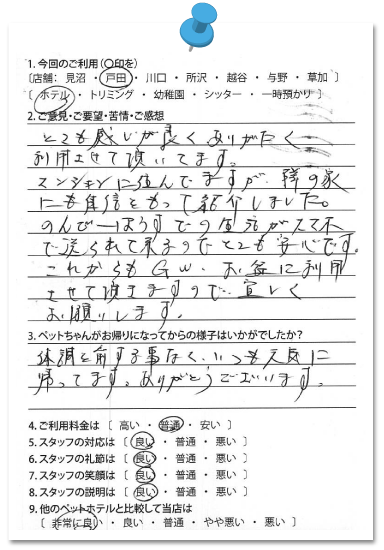 1. 今回のご利用(〇印を)
〔店舗: 見沼 ・ 戸田 ・ 川口 ・ 所沢 ・ 越谷 ・ 与野 ・ 草加 〕
〔 ホテル ・ トリミング ・ 幼稚園 ・ シッター ・ 一時預かり 〕
2. ご意見・ご要望・苦情・ご感想
とても感じが良く ありがたく
利用させて頂いてます。
マンションに住んでますが、隣の家
にも自信をもって紹介しました。
で送られて来るのでとても安心です。
これからもGW、お盆に利用
させて頂きますので、宜しく
お願いします。
3. ペットちゃんがお帰りになってからの様子はいかがでしたか?
体調を崩す事なく、いつも元気に
帰ってます。ありがとうございます。
4. ご利用料金は 〔 高い ・ 普通 ・ 安い 〕
5. スタッフの対応は 〔 良い ・ 普通 ・ 悪い 〕
6. スタッフの礼節は 〔 良い ・ 普通 ・ 悪い 〕
7. スタッフの笑顔は 〔 良い ・ 普通 ・ 悪い 〕
8. スタッフの説明は 〔 良い ・ 普通 ・ 悪い 〕
9. 他のペットホテルと比較して当店は
〔 非常に良い ・ 良い ・ 普通 ・ やや悪い ・ 悪い 〕